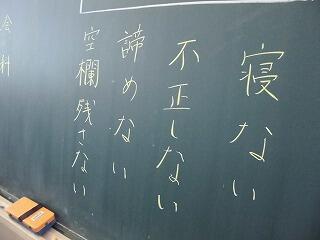 寝ない
不正しない
諦めない
空欄残さない